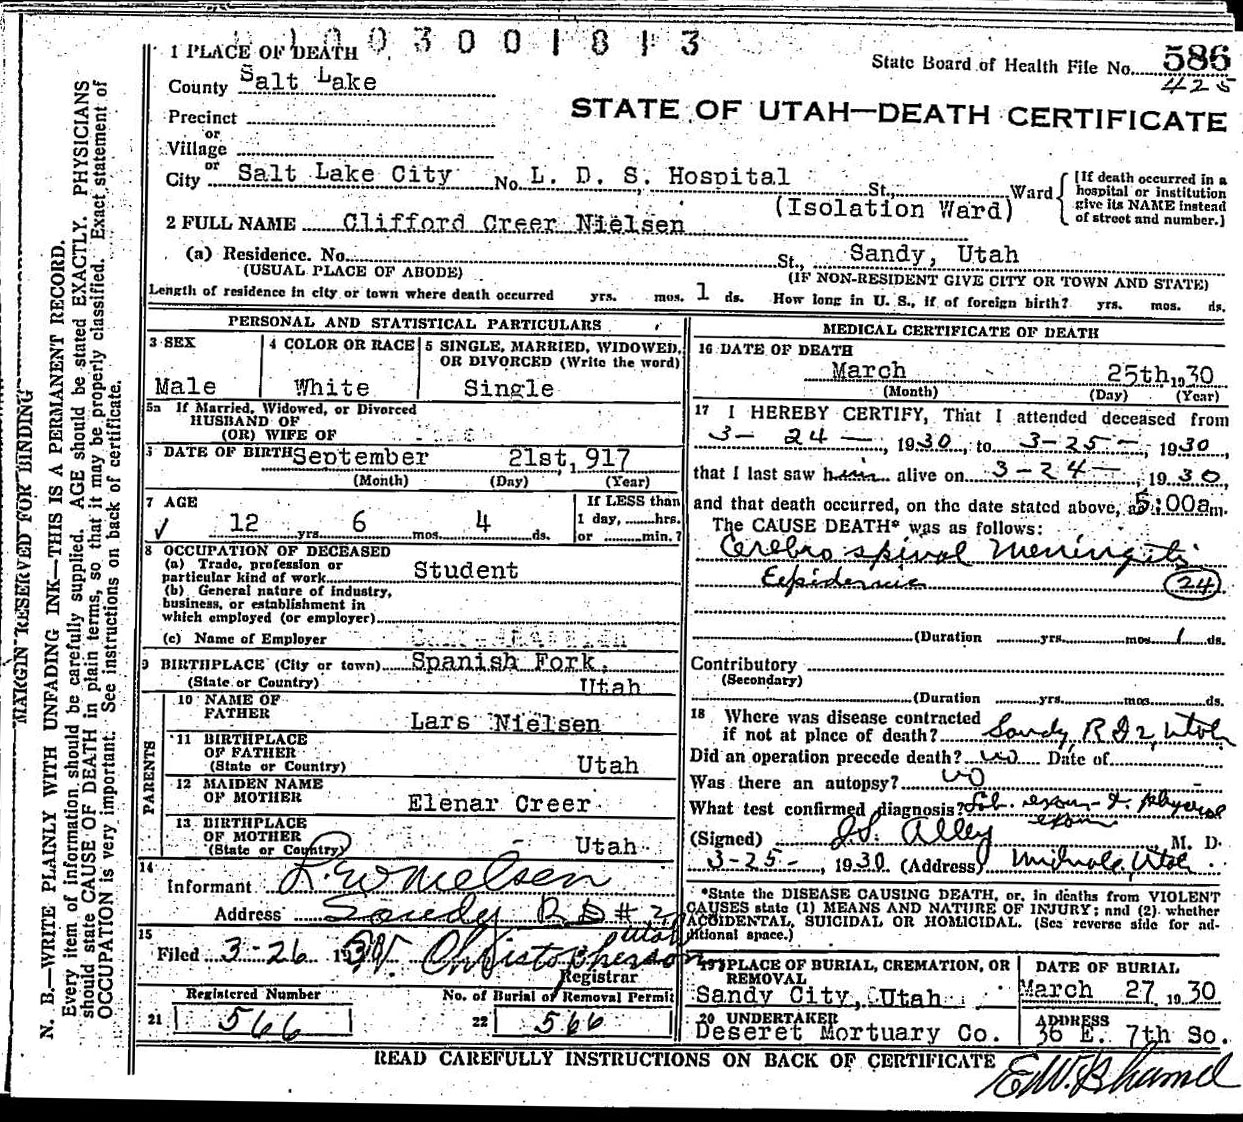 1003001813
1 PLACE OF DEATH
State Board of Health File No. 586
425
County Salt Lake
STATE OF UTAH—DEATH CERTIFICATE
Precinct
or
Village
or
City Salt Lake City No. L. D. S. Hospital St., Ward
(Isolation Ward)
[If death occurred in a
hospital or institution
give its NAME instead
of street and number.]
2 FULL NAME Clifford Creer Nielsen
(a) Residence. No. St., Sandy, Utah
(USUAL PLACE OF ABODE) (IF NON-RESIDENT GIVE CITY OR TOWN AND STATE)
Length of residence in city or town where death occurred yrs. mos. 1 ds. How long in U. S., if of foreign birth? yrs. mos. ds.
PERSONAL AND STATISTICAL PARTICULARS
3 SEX
Male
4 COLOR OR RACE
White
5 SINGLE, MARRIED, WIDOWED,
OR DIVORCED (Write the word)
Single
5a If Married, Widowed, or Divorced
HUSBAND OF
(OR) WIFE OF
DATE OF BIRTH September 21st, 917
(Month) (Day) (Year)
7 AGE
12 yrs. 6 mos. 4 ds.
If LESS than
1 day, hrs.
or min.?
8 OCCUPATION OF DECEASED
(a) Trade, profession or
particular kind of work Student
(b) General nature of industry,
business, or establishment in
which employed (or employer)
(c) Name of Employer
9 BIRTHPLACE (City or town) Spanish Fork,
(State or Country) Utah
PARENTS
10 NAME OF
FATHER Lars Nielsen
11 BIRTHPLACE
OF FATHER
(State or Country) Utah
12 MAIDEN NAME
OF MOTHER Elenar Creer
13 BIRTHPLACE
OF MOTHER
(State or Country) Utah
14
Informant L. W Nielsen
Address Sandy R D # 2
Utah
15
Filed 3-26 193
Christopherson
Registrar
Registered Number No. of Burial or Removal Permit
21 566 22 566
MEDICAL CERTIFICATE OF DEATH
16 DATE OF DEATH
March 25th, 1930
(Month) (Day) (Year)
17 I HEREBY CERTIFY, That I attended deceased from
3- 24 —, 1930, to 3-25 -, 1930,
that I last saw him alive on 3-24 —, 1930,
and that death occurred, on the date stated above, at 5:00am.
The CAUSE DEATH* was as follows:
Cerebro spinal Meningitis
Epidemic 24
(Duration yrs. mos. 1 ds.
Contributory
(Secondary)
(Duration yrs. mos. ds.
18 Where was disease contracted
if not at place of death? Sandy, R D 2, Utah
Did an operation precede death? no Date of
Was there an autopsy? no
What test confirmed diagnosis? Lab. exam & physical
exam
(Signed) J.S. Alley M. D.
3-25-, 1930 (Address) Midvale, Utah
*State the DISEASE CAUSING DEATH, or, in deaths from VIOLENT
CAUSES state (1) MEANS AND NATURE OF INJURY; and (2) whether
ACCIDENTAL, SUICIDAL OR HOMICIDAL. (See reverse side for ad-
ditional space.)
19 PLACE OF BURIAL, CREMATION, OR
REMOVAL
Sandy City, Utah
DATE OF BURIAL
March 27, 1930
20 UNDERTAKER
Deseret Mortuary Co.
ADDRESS
36 E. 7th So.
READ CAREFULLY INSTRUCTIONS ON BACK OF CERTIFICATE
MARGIN RESERVED FOR BINDING
N. B.—WRITE PLAINLY WITH UNFADING INK—THIS IS A PERMANENT RECORD.
Every item of information should be carefully supplied. AGE should be stated EXACTLY. PHYSICIANS
should state CAUSE OF DEATH in plain terms, so that it may be properly classified. Exact statement of
OCCUPATION is very important. See instructions on back of certificate.